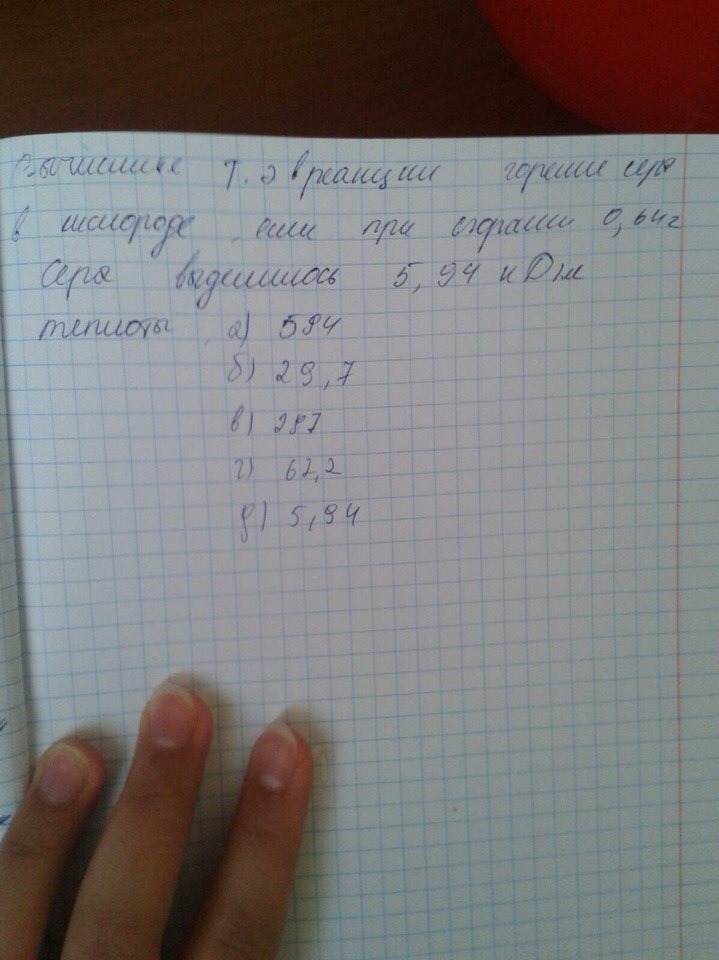 Вычислите Т.Э в реакции горение серы
в кислороде если при сгорании 0,64г
Серы выделилось 5,94 кДж
теплоты а) 594
б) 29,7
в) 297
г) 62,2
д) 5,94